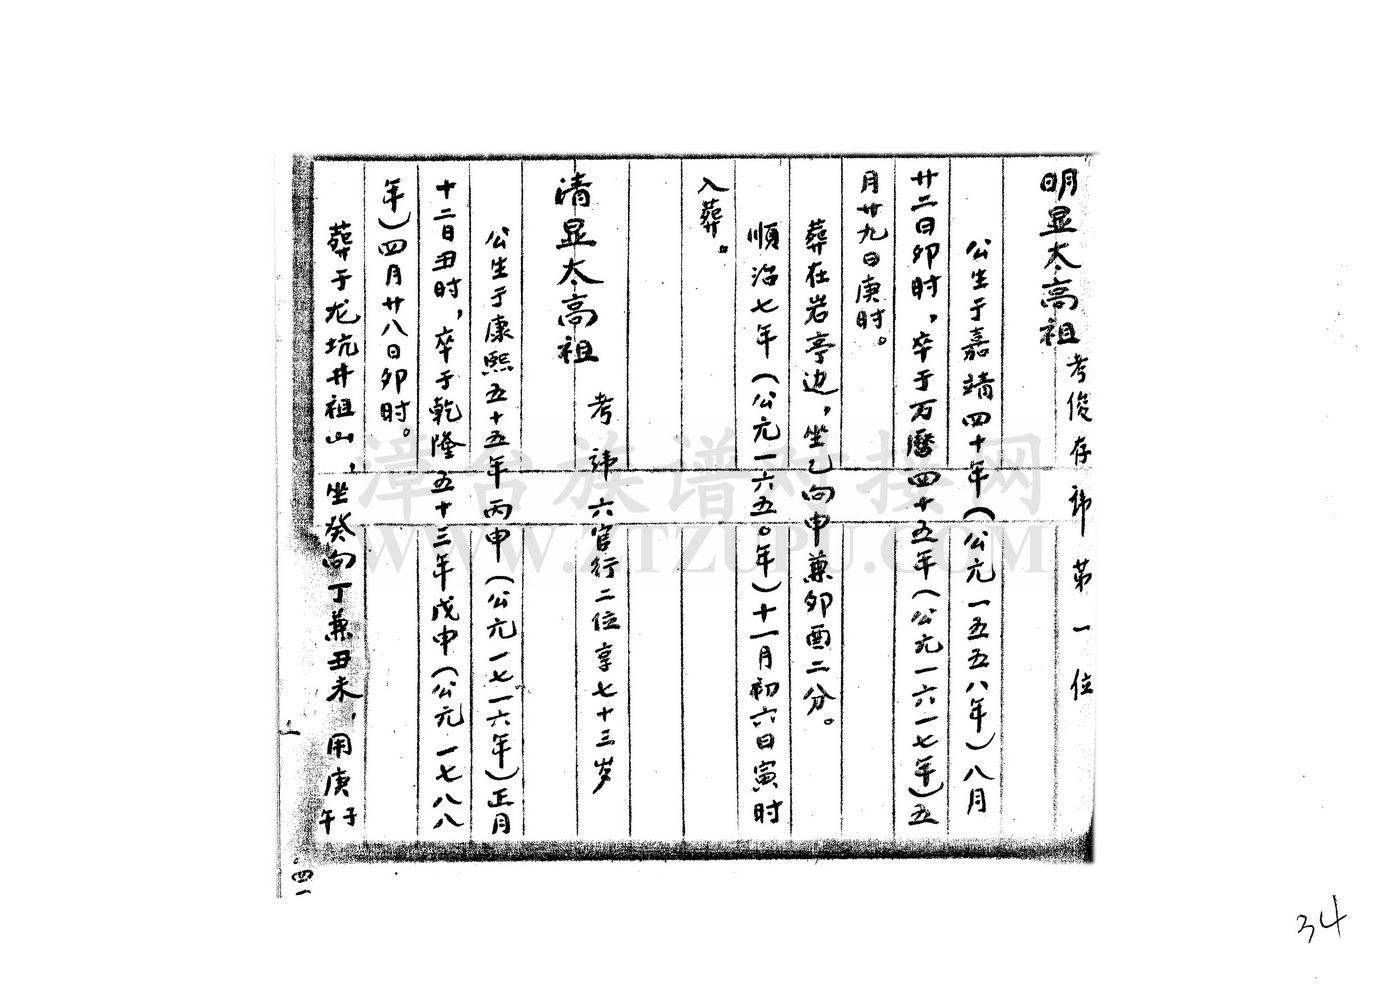 明显太高祖考俊存讳第一位
公生于嘉靖四十年(公元一五五八年)八月
廿二日卯时,卒于万历四十五年(公元一六一七年)五
月廿九日庚时。
葬在岩亭边,坐乙向申兼卯酉二分。
顺治七年(公元一六五〇年)十一月初六日寅时
入葬。
清显太高祖考讳六官行二位享七十三岁
公生于康熙五十五年丙申(公元一七一六年)正月
十二日丑时,卒于乾隆五十三年戊申(公元一七八八
年)四月廿八日卯时。
葬于龙坑井祖山,坐癸向丁兼丑未,用庚子
午
上
四一
漳台族谱对接网
WWW.ZTZUPU.COM
34